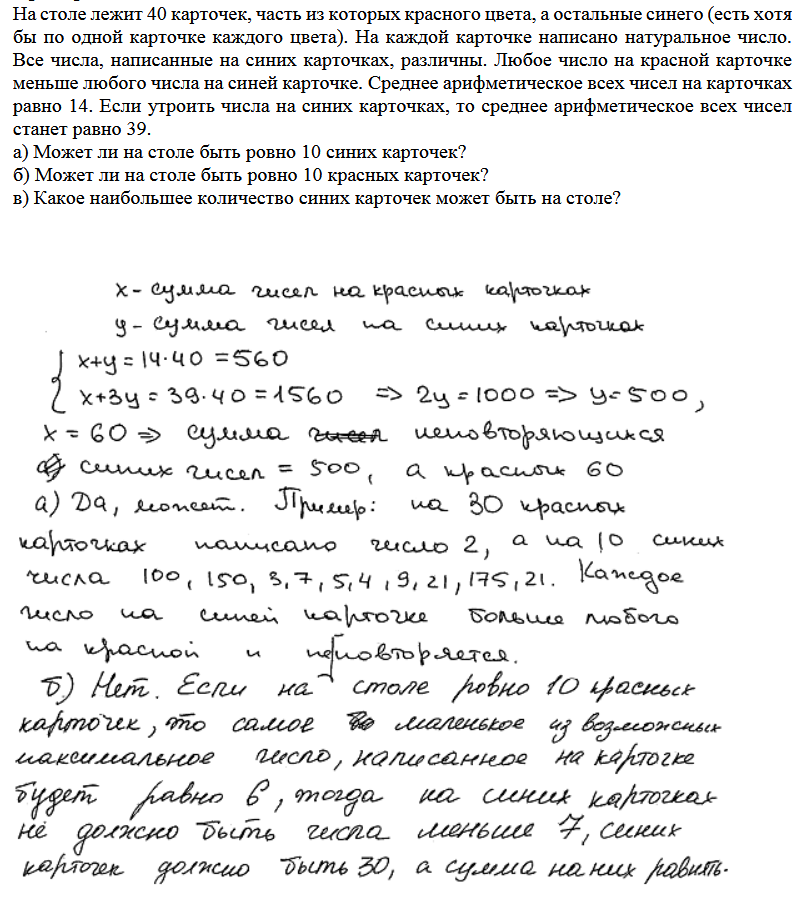 На столе лежит 40 карточек, часть из которых красного цвета, а остальные синего (есть хотя
бы по одной карточке каждого цвета). На каждой карточке написано натуральное число.
Все числа, написанные на синих карточках, различны. Любое число на красной карточке
меньше любого числа на синей карточке. Среднее арифметическое всех чисел на карточках
равно 14. Если утроить числа на синих карточках, то среднее арифметическое всех чисел
станет равно 39.
а) Может ли на столе быть ровно 10 синих карточек?
б) Может ли на столе быть ровно 10 красных карточек?
в) Какое наибольшее количество синих карточек может быть на столе?
x - сумма чисел на красных карточках
y - сумма чисел на синих карточках
x+y = 14·40 = 560
x+3y = 39·40 = 1560 => 2y = 1000 => y = 500,
x = 60 => сумма чисел неповторяющихся
синих чисел = 500, а красных 60
а) Да, может. Пример: на 30 красных
карточках написано число 2, а на 10 синих
числа 100, 150, 3, 7, 5, 4, 9, 21, 175, 21. Каждое
число на синей карточке больше любого
на красной и неповторяется.
б) Нет. Если на столе ровно 10 красных
карточек, то самое маленькое из возможных
максимальное число, написанное на карточке
будет равно 6, тогда на синих карточках
не должно быть числа меньше 7, синих
карточек должно быть 30, а сумма на них равнять.